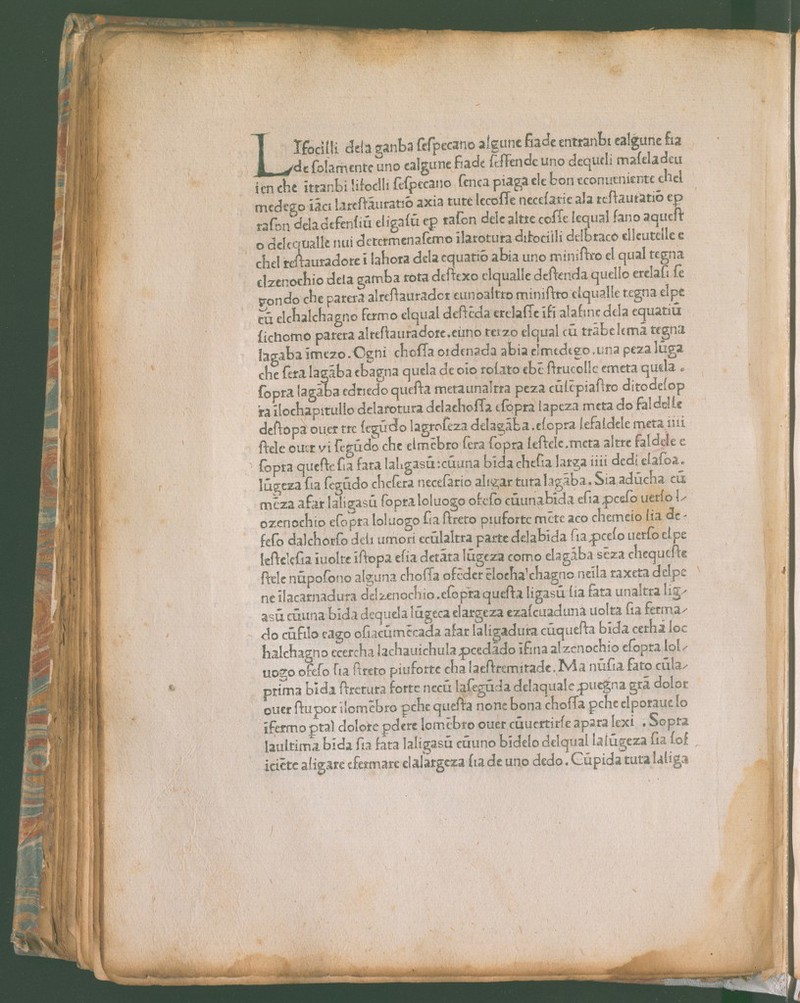 LIfocilli dela ganba ſeſpecano algune fiade entranbi ealgune fia
de ſolamente uno ealgune fiade ſeſſende uno dequeli maſeladeu
ien che itranbi lifocilli ſeſpecano ſenca piaga ele bon econueniente chel
medego iāci lareſtāuratiō axia tute lecoſſe neceſarie ala reſtauratiō ep
raſon deladefenſiū eligaſū ep raſon dele altre coſſe lequal ſano aqueſt
o delequalle nui determenaſemo ilarotura difociili delbraco elleutelle e
chel reſtauradore i lahora dela equatiō abia uno miniſtro el qual tegna
elzenochio dela gamba rota deſtexo elqualle deſtenda quello erelaſi ſe
gondo che parera alreſtaurador eunoaltro miniſtro elqualle tegna elpe
cū elchalchagno fermo elqual deſtēda erelaſſe iſi alafine dela equatiū
ſichomo parera alreſtauradore.euno terzo elqual cū trābelema tegna
lagaba imezo. Ogni choſſa ordenada abia elmedego.una peza lūga
che ſera lagāba ebagna quela de oio roſato ebē ſtrucolle emeta quela .
ſopra lagāba edriedo queſta metaunaltra peza cūlēpiaſtro ditodeſop
ra ilochapitullo delarotura delachoſſa eſopra lapeza meta do faldelle
deſtopa ouer tre ſegūdo lagroſeza delagāba.eſopra lefaldele meta iiii
ſtele ouer vi ſegūdo che elmēbro ſera ſopra leſtele.meta altre faldele e
ſopra queſte ſia fata laligasū:cūuna bida cheſia larga iiii dedi elaſoa.
lūgeza ſia ſegūdo cheſera neceſario aligar tuta lagāba. Sia adūcha cū
mēza afar laligasū ſopra loluogo ofeſo cūunabida eſia ꝓceſo uerſo l
ozenochio eſopra loluogo ſia ſtreto piuforte mēte aco chemeio ſia de-
feſo dalchorſo deli umori ecūlaltra parte delabida ſia ꝓceſo uerſo elpe
leſteleſia iuolte iſtopa eſia detāta lūgeza como elagāba sēza chequeſte
ſtele nūpoſono alguna choſſa ofēder ēlochal'chagno neila raxeta delpe
ne ilacarnadura delzenochio.eſopra queſta ligasū ſia fata unaltra lig-
asū cūuna bida dequela lūgeca elargeza ezaſcuaduna uolta ſia ferma-
do cūfilo eago oſiacūmēcada afar laligadura cūqueſta bida cerha loc
halchagno ecercha lachauichula ꝓcedādo iſina alzenochio eſopra lol-
uogo ofeſo ſia ſtreto piuforte cha laeſtremitade. Ma nūſia fato cūla-
prima bida ſtretura forte necū laſegūda delaquale ꝓuegna grā dolor
ouer ſtupor ilomēbro pche queſta none bona choſſa pche elporaue lo
ifermo ptal dolore pdere lomēbro ouer cūuertirſe apara lexi . Sopra
laultima bida ſia fata laligasū cūuno bidelo delqual lalūgeza ſia ſof
iciēte aligare efermare elalargeza ſia de uno dedo. Cūpida tuta laliga